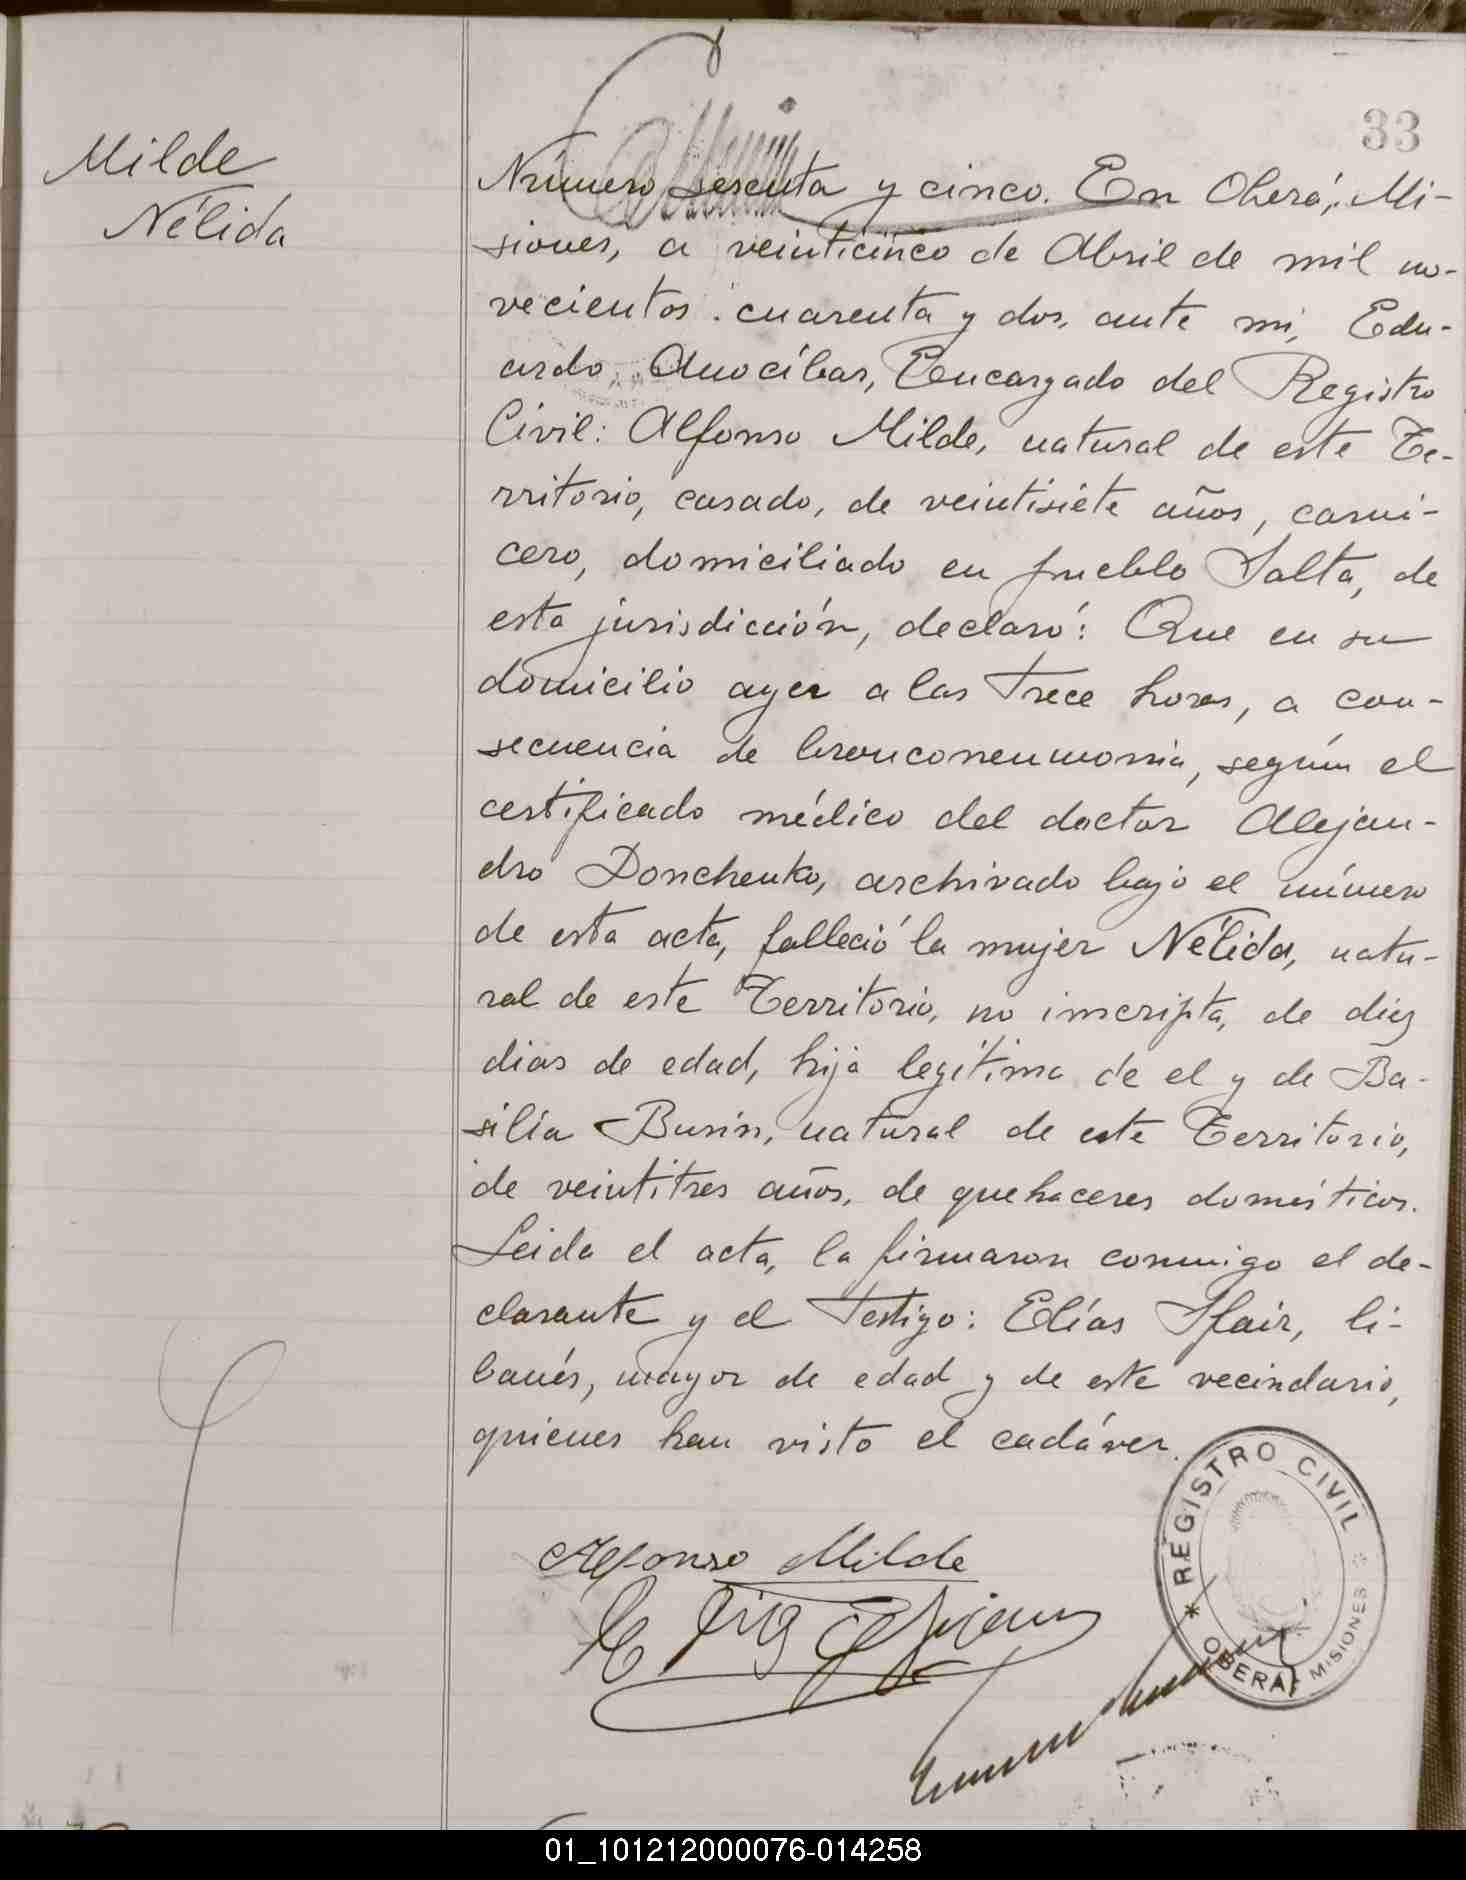 33
Milde
Nélida
Número sesenta y cinco. En Oberá, Mi-
siones, a veinticinco de Abril de mil no-
vecientos cuarenta y dos, ante mi, Edu-
ardo Anocíbar, Encargado del Registro
Civil: Alfonso Milde, natural de este Te-
rritorio, casado, de veintisiete años, carni-
cero, domiciliado en pueblo Salta, de
esta jurisdicción, declaró: Que en su
domicilio ayer a las trece horas, a con-
secuencia de bronconeumonia, según el
certificado médico del doctor Alejan-
dro Donchenko, archivado bajo el número
de esta acta, falleció la mujer Nélida, natu-
ral de este Territorio, no inscripta, de diez
dias de edad, hija legítima de el y de Ba-
silia Busin, natural de este Territorio,
de veintitres años, de quehaceres domésticos.
Leida el acta, la firmaron conmigo el de-
clarante y el testigo: Elías Sfair, li-
banés, mayor de edad y de este vecindario,
quienes han visto el cadáver.
Alfonso Milde
* REGISTRO CIVIL *
OBERA, MISIONES
01_101212000076-014258